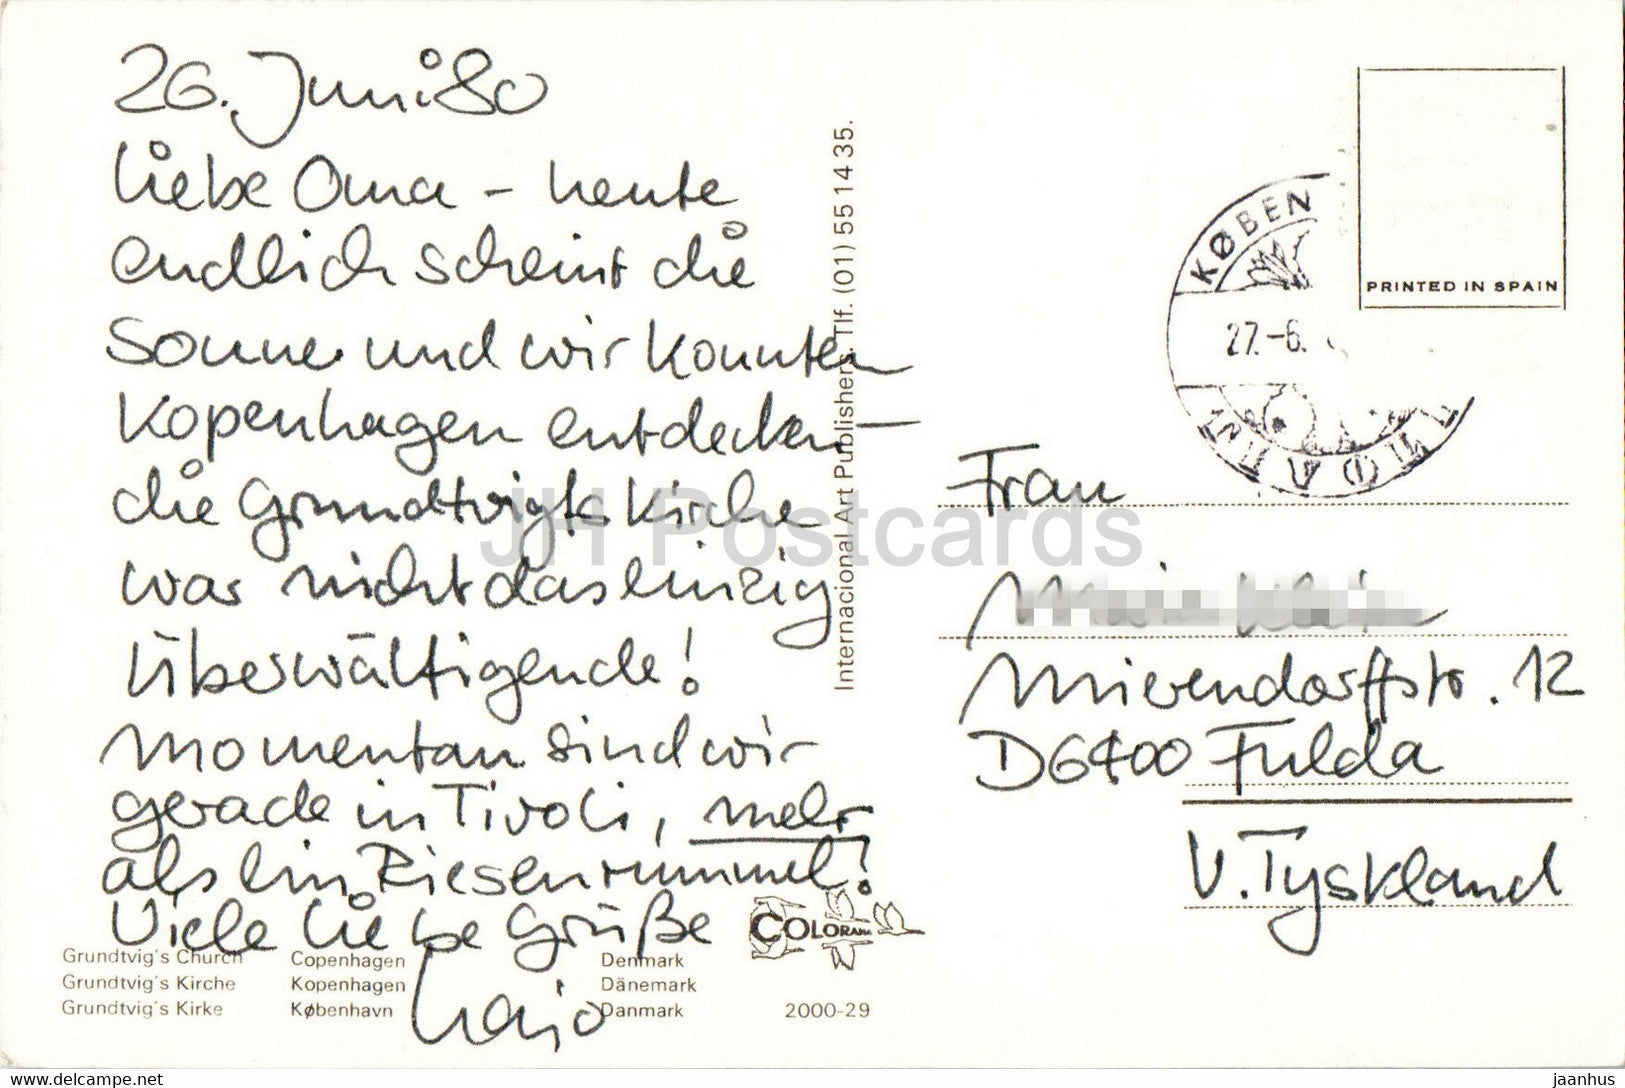 26. Juni 80
Liebe Oma - heute
endlich scheint die
Sonne und wir konnten
Kopenhagen entdecken -
die Grundtvigts Kirche
war nicht das einzig
Überwältigende!
Momentan sind wir
gerade in Tivoli, mehr
als ein Riesenrummel!
Viele liebe Grüße
Grundtvig's Church Copenhagen Denmark
Grundtvig's Kirche Kopenhagen Dänemark
Grundtvig's Kirke København Danmark
COLORAMA
2000-29
Internacional Art Publishers. Tlf. (01) 55 14 35.
PRINTED IN SPAIN
KØBEN
27.-6.
TIVOLI
Frau
Mierendorffstr. 12
D6400 Fulda
V. Tyskland
JH Postcards
www.delcampe.net
jaanhus